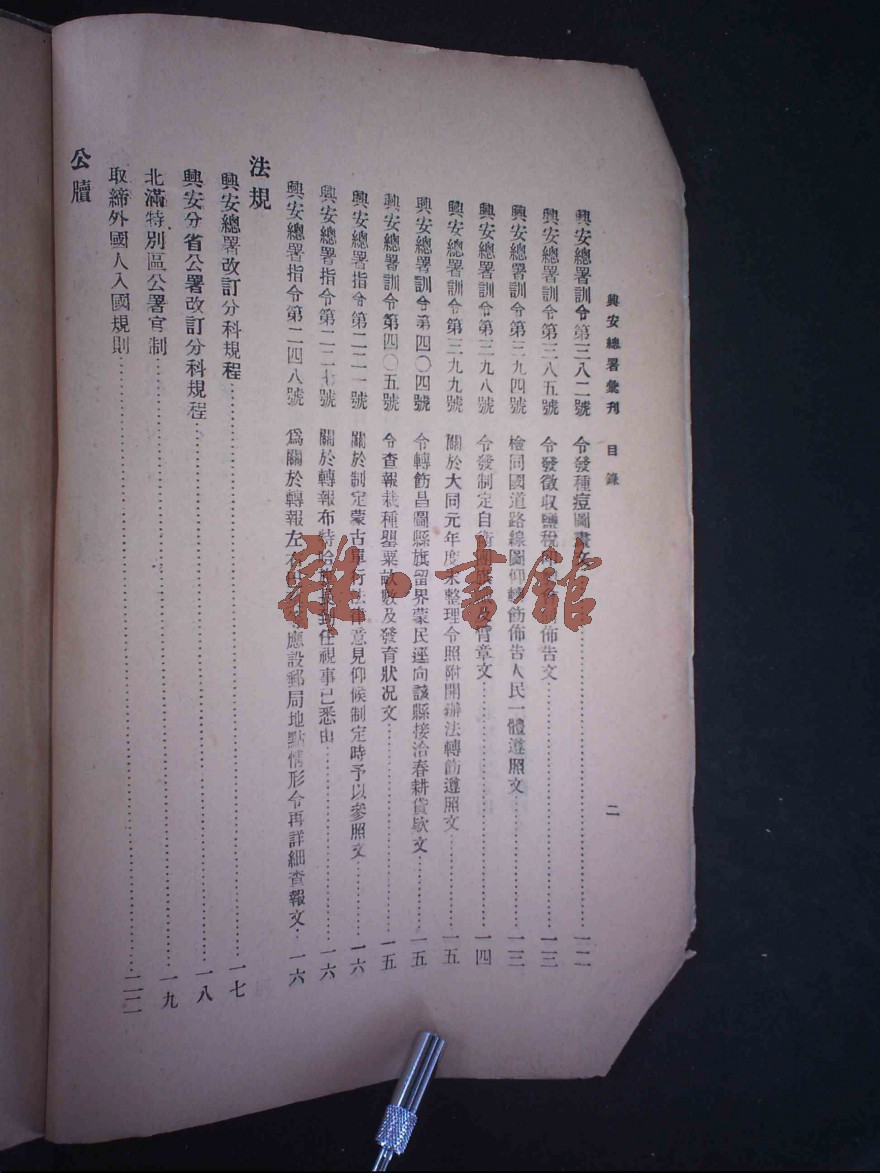 興安總署彙刊 目錄 二
興安總署訓令第三八二號 令發種痘圖畫文 一二
興安總署訓令第三八五號 令發徵収鹽稅 佈告文 一三
興安總署訓令第三九四號 檢同國道路線圖仰轉飭佈告人民一體遵照文 一三
興安總署訓令第三九八號 令發制定自衛團旗 及臂章文 一四
興安總署訓令第三九九號 關於大同元年度末整理令照附開辦法轉飭遵照文 一五
興安總署訓令第四〇四號 令轉飭昌圖縣旗留界蒙民逕向該縣接洽春耕貸欵文 一五
興安總署訓令第四〇五號 令查報栽種罌粟畝數及發育狀况文 一五
興安總署指令第二二一號 關於制定蒙古單行法律意見仰候制定時予以參照文 一六
興安總署指令第二二七號 關於轉報布特哈 到任視事已悉由 一六
興安總署指令第二四八號 爲關於轉報左右 應設郵局地點情形令再詳細查報文 一六
法規
興安總署改訂分科規程 一七
興安分省公署改訂分科規程 一八
北滿特別區公署官制 一九
取締外國人入國規則 二二
公牘
雅·書館